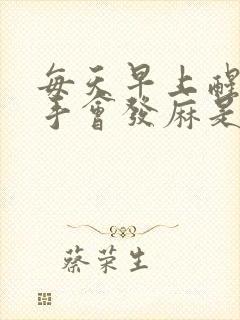 每天早上醒
手會發麻是
蔡荣生